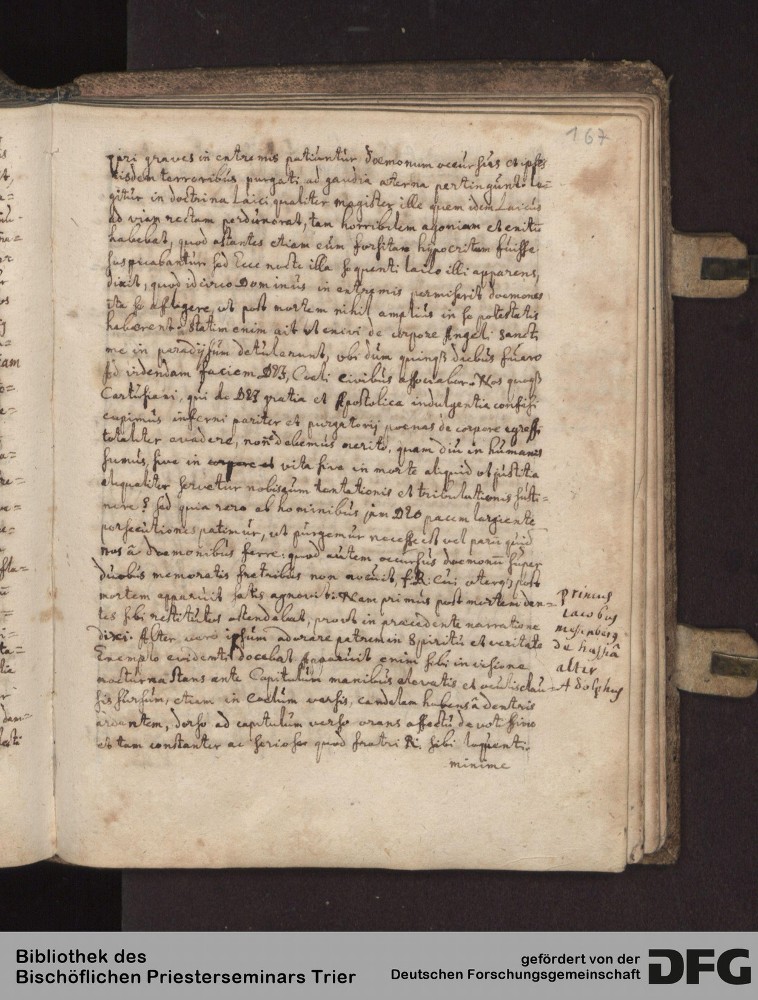 167
pri graves in extremis patiuntur dæmonum occursus et ipsis
eisdem terroribus purgati ad gaudia æterna pertingunt. le=
gitur in doctrina Laici qualiter magister ille quem idem Laicus
ad viam rectam perduxerat, tam horribilem agoniam et exitum
habebat, quod astantes etiam eum forsitam hypocritam fuisse
suspicabantur sed Ecce nocte illa sequenti laico illi apparens,
dixit, quod idcirco Dominus in extremis permiserit dæmones
ita se affligere, ut post mortem nihil amplius in se potestatis
haberent. Statim enim ait ut exivi de corpore Angeli Sancti
me in paradysum detulerunt, ubi dum quinq3 diebus fuero
ad videndam faciem DEI, Cæli civibus associabor. Nos quoq3
Cartusiani, qui de DEI gratia et Apostolica indulgentia confisi
cupimus inferni pariter et purgatorij poenas de corpore egressi
totaliter evadere, nonne debemus merito, quam diu in humanis
sumus, sive in vita sive in morte aliquid ut justitia
aliqualiter servetur nobiscum tentationis et tribulationis susti=
nere? sed quia vero ab hominibus jam DEO pacem largiente
persecutiones patimur, ut purgemur necesse est vel parum quid
nos â dæmonibus ferre: quod autem occursus dæmonum super
duobus memoratis fratribus non nocuit, f. R. cui uterq3 post
mortem apparuit satis agnovit: Nam primus post mortem den=
tes sibi restitutos ostendebat, prout in præcedente narratione
dixi. Alter vero ipsum adorare patrem in Spiritu et veritate
Exemplo evidenti docebat Apparuit enim sibi in visione
nocturna stans ante Capitulum manibus elevatis et oculis clau=
sis sursum, etiam in Cælum versis, candelam habens â dentris
ardentem, dorso ad capitulum verso orans affectu devotissimo
et tam constanter ac seriose quod fratri R. sibi loquenti
minime
Primus
Iacobus
de hassia
alter
Adolphus
Bibliothek des
Bischöflichen Priesterseminars Trier
gefördert von der
Deutschen Forschungsgemeinschaft
DFG